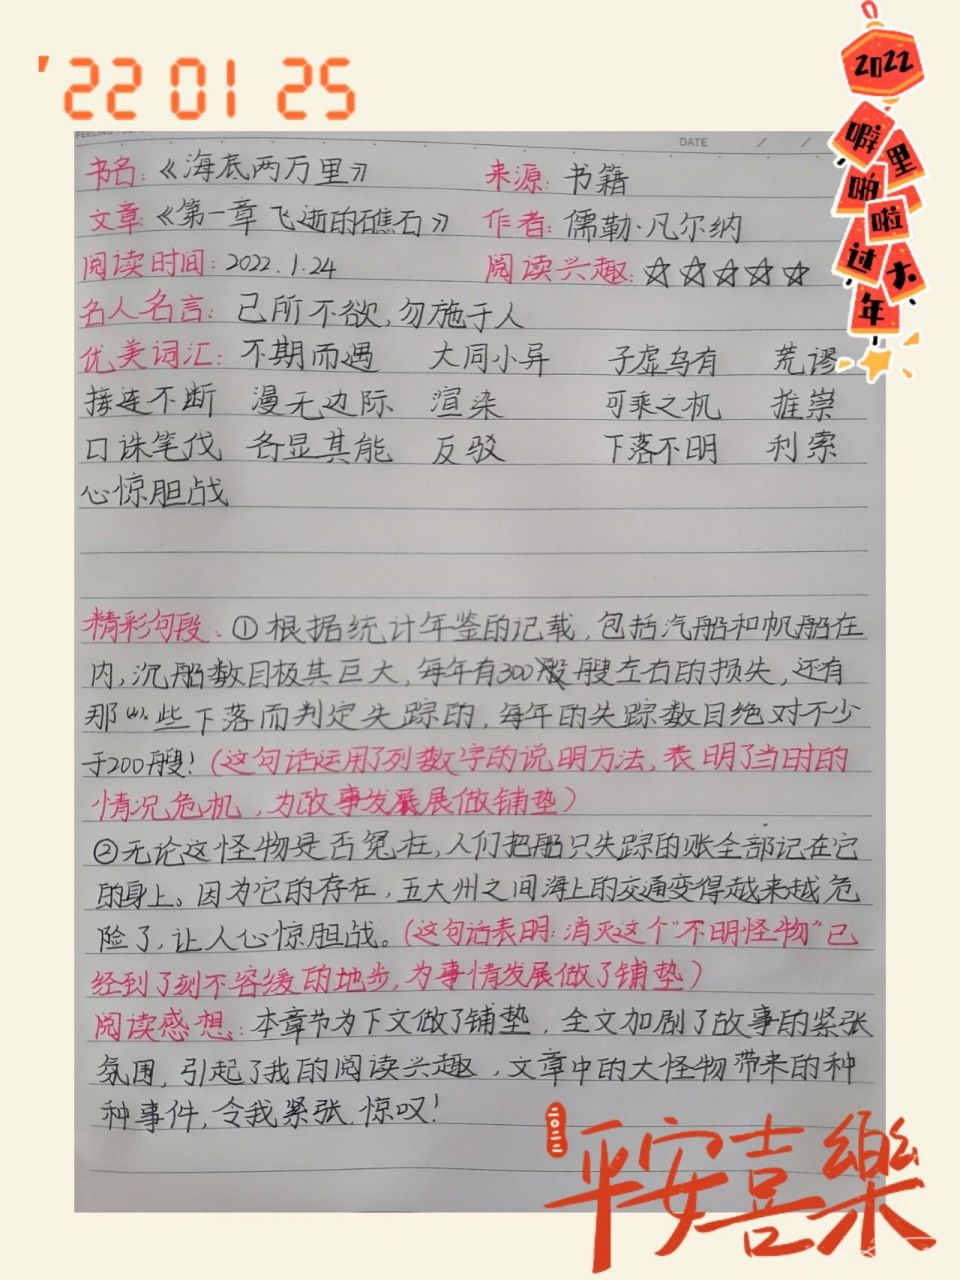 '22 01 25
2022
噼里啪啦过大年
DATE / /
书名:《海底两万里》 来源:书籍
文章:《第一章 飞逝的礁石》 作者:儒勒·凡尔纳
阅读时间:2022.1.24 阅读兴趣:☆☆☆☆☆
名人名言:己所不欲,勿施于人
优美词汇:不期而遇 大同小异 子虚乌有 荒谬
接连不断 漫无边际 渲染 可乘之机 推崇
口诛笔伐 各显其能 反驳 下落不明 利索
心惊胆战
精彩句段:①根据统计年鉴的记载,包括汽船和帆船在
内,沉船数目极其巨大,每年有300艘左右的损失,还有
那些下落而判定失踪的,每年的失踪数目绝对不少
于200艘!(这句话运用了列数字的说明方法,表明了当时的
情况危机,为故事发展做铺垫)
②无论这怪物是否冤枉,人们把船只失踪的账全部记在它
的身上。因为它的存在,五大州之间海上的交通变得越来越危
险了,让人心惊胆战。(这句话表明:消灭这个"不明怪物"已
经到了刻不容缓的地步,为事情发展做了铺垫)
阅读感想:本章节为下文做了铺垫,全文加剧了故事的紧张
氛围,引起了我的阅读兴趣,文章中的大怪物带来的种
种事件,令我紧张,惊叹!
二〇二二
平安喜樂